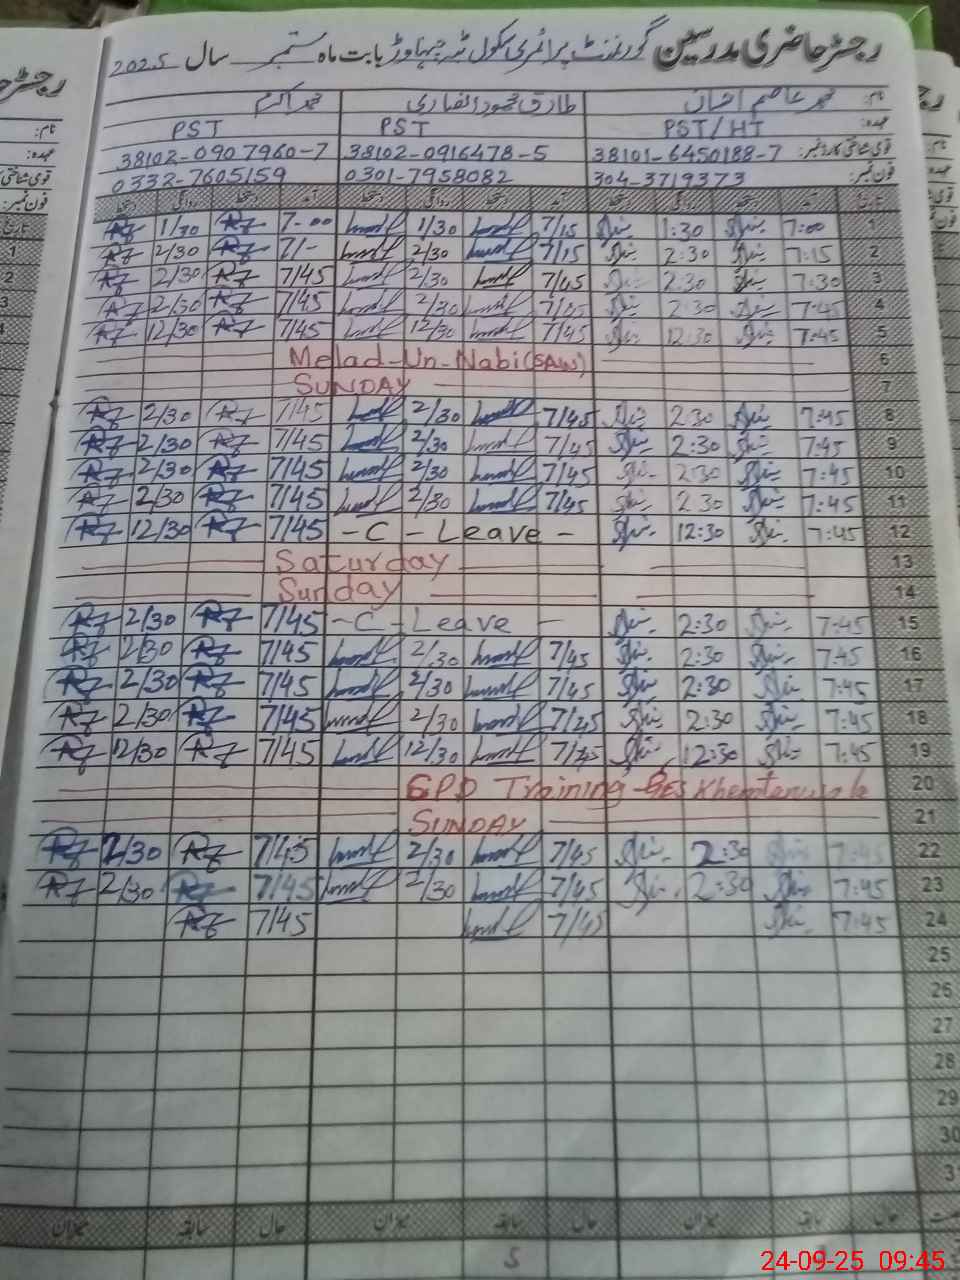 رجسٹر حاضری مدرسین گورنمنٹ پرائمری سکول ٹبہ جہاوڑ بابت ماہ ستمبر سال 2025
نام: محمد عاصم احسان طارق محمود انصاری محمد اکرم
عہدہ: PST/HT PST PST
قومی شناختی کارڈ نمبر: 38101-6450188-7 38102-0916478-5 38102-0907960-7
فون نمبر: 304-3719373 0301-7958082 0332-7605159
تاریخ آمد دستخط روانگی دستخط آمد دستخط روانگی دستخط آمد دستخط روانگی دستخط
1 7:00 1:30 7/15 1/30 7-00 1/30
2 7:15 2:30 7/15 2/30 7/- 2/30
3 7:30 2:30 7/45 2/30 7/45 2/30
4 7:45 2:30 7/45 2/30 7/45 2/30
5 7:45 12:30 7/45 12/30 7/45 12/30
6 Melad-Un-Nabi (SAW)
7 SUNDAY
8 7:45 2:30 7/45 2/30 7/45 2/30
9 7:45 2:30 7/45 2/30 7/45 2/30
10 7:45 2:30 7/45 2/30 7/45 2/30
11 7:45 2:30 7/45 2/30 7/45 2/30
12 7:45 12:30 -C-Leave- 7/45 12/30
13 Saturday
14 Sunday
15 7:45 2:30 -C-Leave- 7/45 2/30
16 7:45 2:30 7/45 2/30 7/45 2/30
17 7:45 2:30 7/45 2/30 7/45 2/30
18 7:45 2:30 7/45 2/30 7/45 2/30
19 7:45 12:30 7/45 12/30 7/45 12/30
20 CPD Training
21 SUNDAY
22 7:45 2:30 7/45 2/30 7/45 2/30
23 7:45 2:30 7/45 2/30 7/45 2/30
24 7:45 7/45 7/45
25
26
27
28
29
30
31
حال سابقہ میزان حال سابقہ میزان حال سابقہ میزان
5
24-09-25 09:45